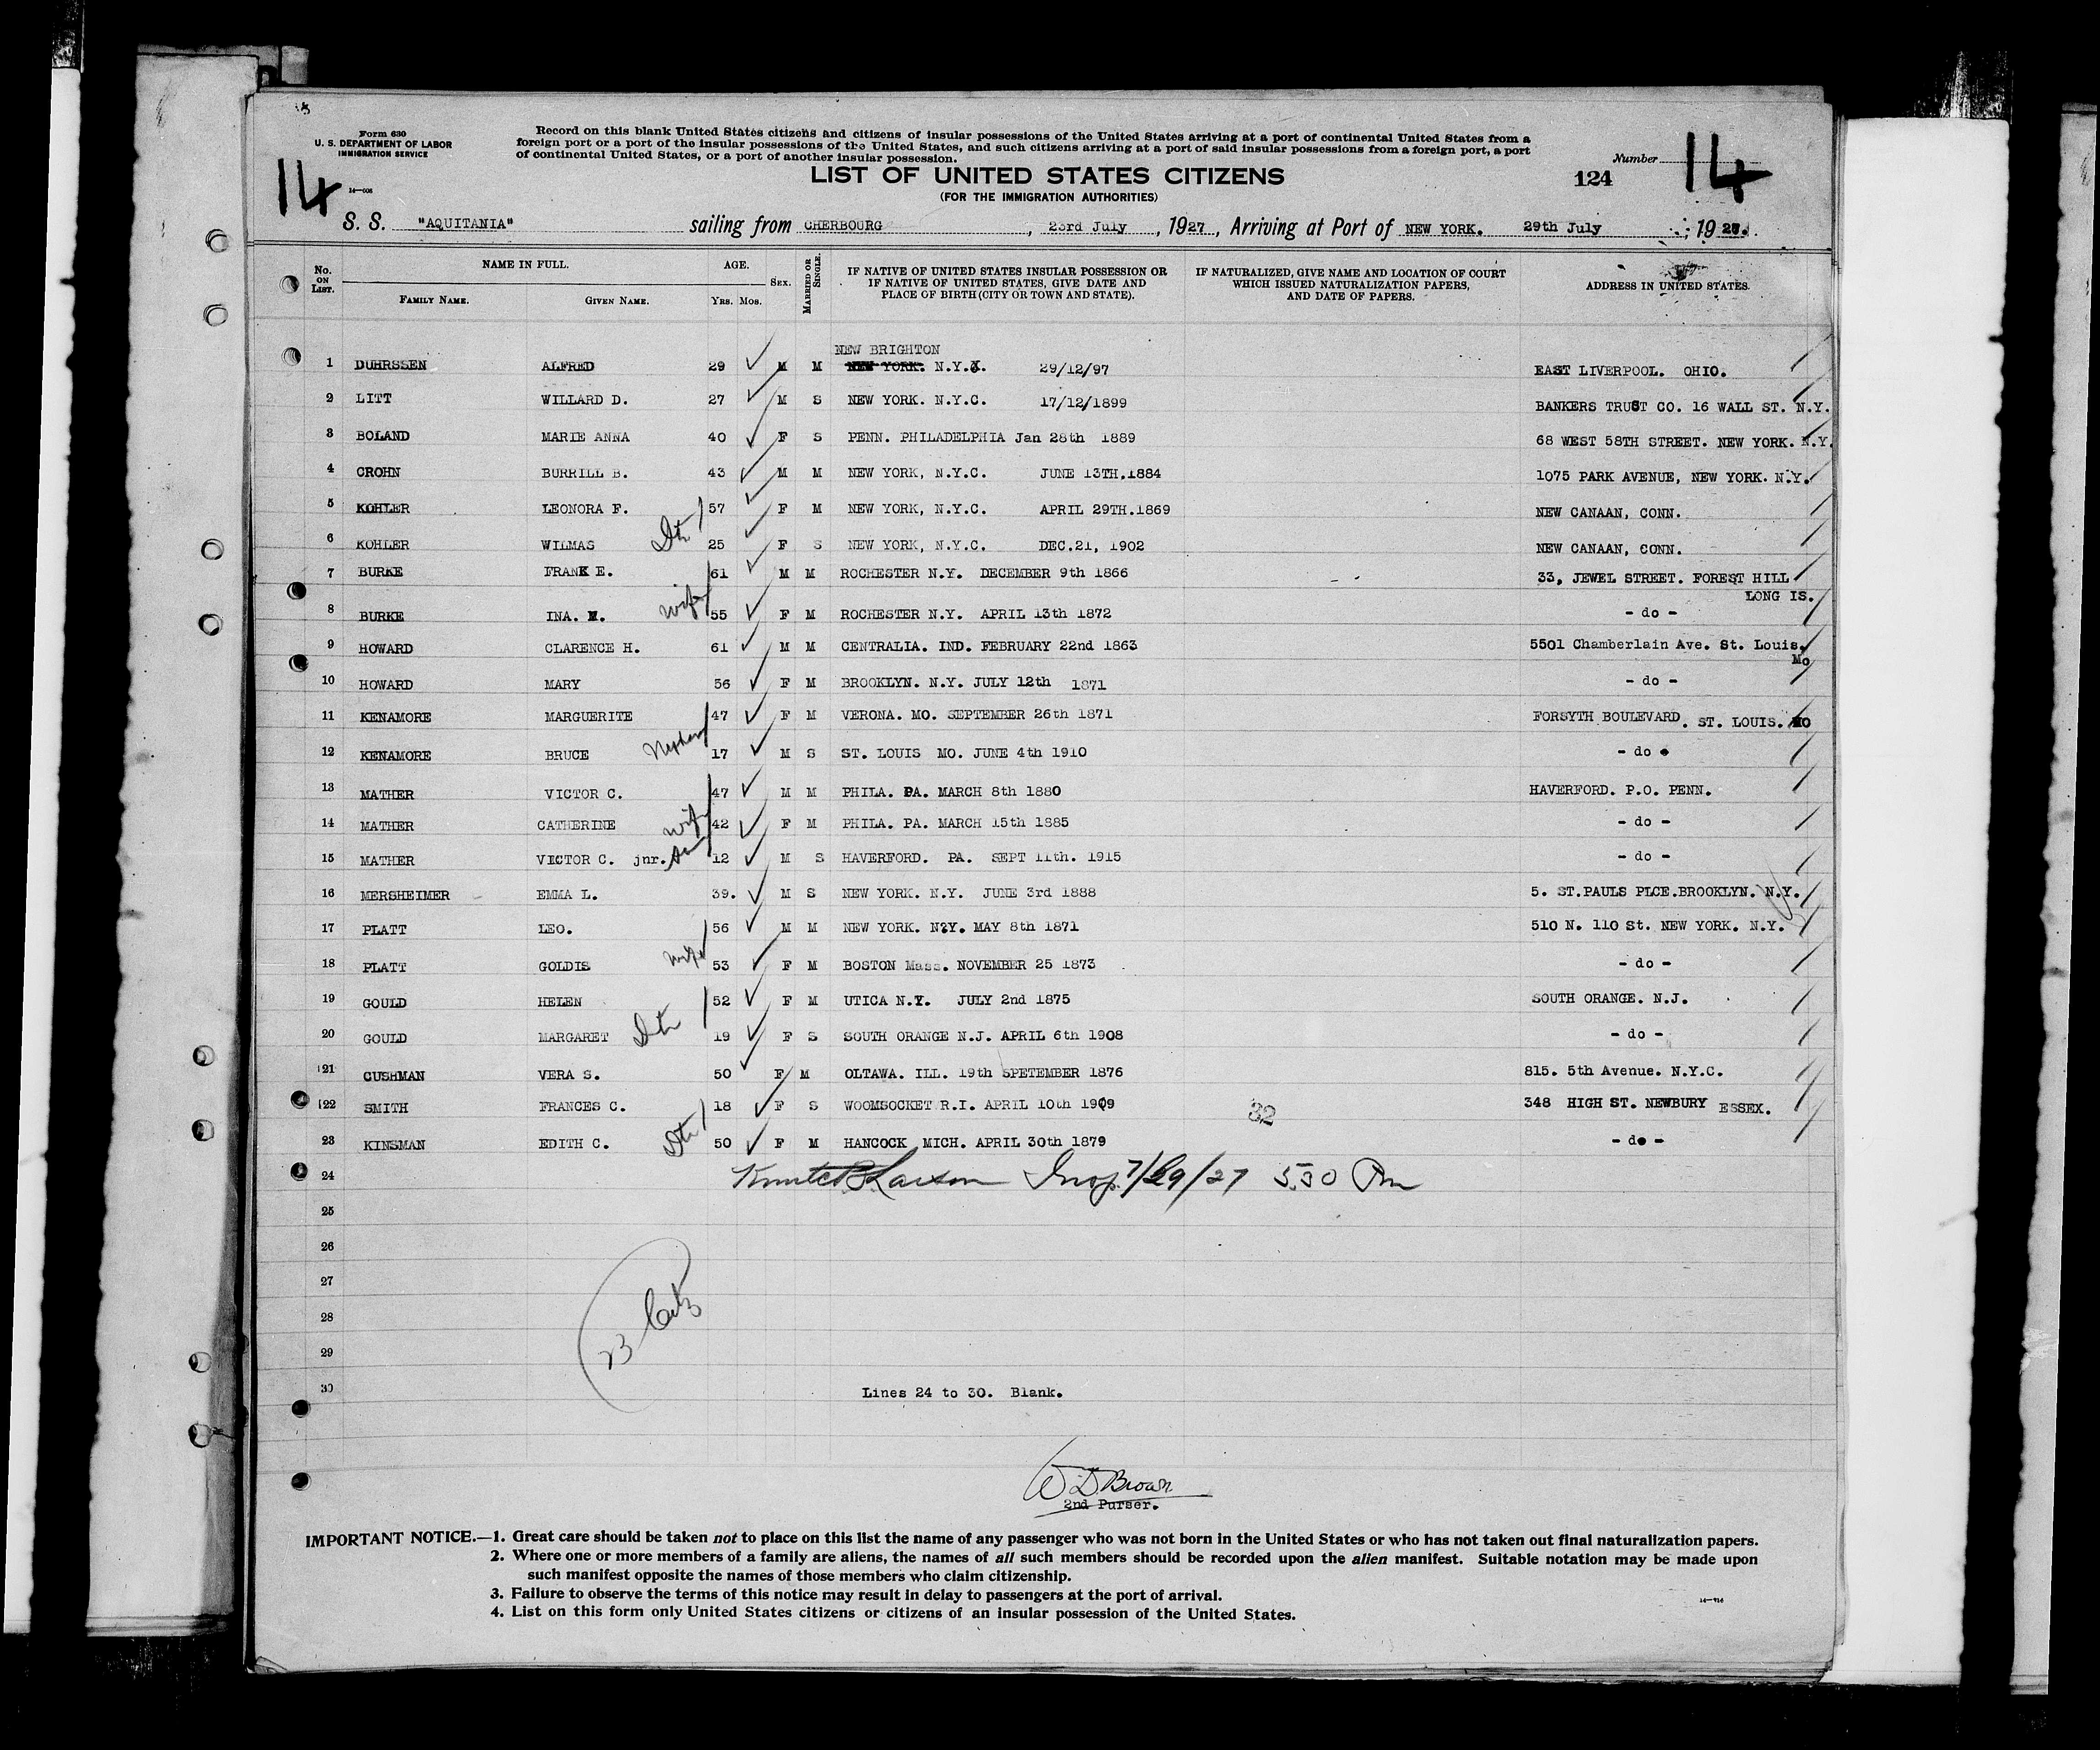 Form 630
U. S. DEPARTMENT OF LABOR
IMMIGRATION SERVICE
14—606
14
Record on this blank United States citizens and citizens of insular possessions of the United States arriving at a port of continental United States from a
foreign port or a port of the insular possessions of the United States, and such citizens arriving at a port of said insular possessions from a foreign port, a port
of continental United States, or a port of another insular possession.
LIST OF UNITED STATES CITIZENS
(FOR THE IMMIGRATION AUTHORITIES)
Number
124
14
S. S. "AQUITANIA" sailing from CHERBOURG , 23rd July , 1927 , Arriving at Port of NEW YORK. 29th July , 1927.
No. ON LIST. NAME IN FULL. AGE. SEX. MARRIED OR SINGLE. IF NATIVE OF UNITED STATES INSULAR POSSESSION OR IF NATIVE OF UNITED STATES, GIVE DATE AND PLACE OF BIRTH (CITY OR TOWN AND STATE). IF NATURALIZED, GIVE NAME AND LOCATION OF COURT WHICH ISSUED NATURALIZATION PAPERS, AND DATE OF PAPERS. ADDRESS IN UNITED STATES.
FAMILY NAME. GIVEN NAME. YRS. MOS.
NEW BRIGHTON
1 DUHRSSEN ALFRED 29 M M NEW YORK. N.Y. 29/12/97 EAST LIVERPOOL. OHIO.
2 LITT WILLARD D. 27 M S NEW YORK. N.Y.C. 17/12/1899 BANKERS TRUST CO. 16 WALL ST. N.Y.
3 BOLAND MARIE ANNA 40 F S PENN. PHILADELPHIA Jan 28th 1889 68 WEST 58TH STREET. NEW YORK. N.Y.
4 CROHN BURRILL B. 43 M M NEW YORK, N.Y.C. JUNE 13TH.1884 1075 PARK AVENUE, NEW YORK. N.Y.
5 KOHLER LEONORA F. 57 F M NEW YORK, N.Y.C. APRIL 29TH.1869 NEW CANAAN, CONN.
6 KOHLER WILMAS Dtr 25 F S NEW YORK, N.Y.C. DEC.21, 1902 NEW CANAAN, CONN.
7 BURKE FRANK E. 61 M M ROCHESTER N.Y. DECEMBER 9th 1866 33, JEWEL STREET. FOREST HILL
LONG IS.
8 BURKE INA. M. wife 55 F M ROCHESTER N.Y. APRIL 13th 1872 - do -
9 HOWARD CLARENCE H. 61 M M CENTRALIA. IND. FEBRUARY 22nd 1863 5501 Chamberlain Ave. St. Louis.
Mo
10 HOWARD MARY 56 F M BROOKLYN. N.Y. JULY 12th 1871 - do -
11 KENAMORE MARGUERITE 47 F M VERONA. MO. SEPTEMBER 26th 1871 FORSYTH BOULEVARD. ST. LOUIS. MO
12 KENAMORE BRUCE Nephew 17 M S ST. LOUIS MO. JUNE 4th 1910 - do -
13 MATHER VICTOR C. 47 M M PHILA. PA. MARCH 8th 1880 HAVERFORD. P.O. PENN.
14 MATHER CATHERINE wife 42 F M PHILA. PA. MARCH 15th 1885 - do -
15 MATHER VICTOR C. jnr. son 12 M S HAVERFORD. PA. SEPT 11th. 1915 - do -
16 MERSHEIMER - EMMA L. 39. M S NEW YORK. N.Y. JUNE 3rd 1888 5. ST.PAULS PLCE.BROOKLYN. N.Y.
17 PLATT LEO. 56 M M NEW YORK. N?Y. MAY 8th 1871 510 N. 110 St. NEW YORK. N.Y.
18 PLATT GOLDIE wife 53 F M BOSTON Mass. NOVEMBER 25 1873 - do -
19 GOULD HELEN 52 F M UTICA N.Y. JULY 2nd 1875 SOUTH ORANGE. N.J.
20 GOULD MARGARET Dtr 19 F S SOUTH ORANGE N.J. APRIL 6th 1908 - do -
21 CUSHMAN VERA S. 50 F M OLTAWA. ILL. 19th SPETEMBER 1876 815. 5th Avenue. N.Y.C.
22 SMITH FRANCES C. 18 F S WOOMSOCKET R.I. APRIL 10th 1909 32 348 HIGH ST. NEWBURY ESSEX.
23 KINSMAN EDITH C. Dtr 50 F M HANCOCK MICH. APRIL 30th 1879 - do -
24 Larson Insp. 7/29/27 5.30 Pm
25
26
27
28
29
23 Citz
30 Lines 24 to 30. Blank.
W D Brown
2nd Purser.
IMPORTANT NOTICE.—1. Great care should be taken not to place on this list the name of any passenger who was not born in the United States or who has not taken out final naturalization papers.
2. Where one or more members of a family are aliens, the names of all such members should be recorded upon the alien manifest. Suitable notation may be made upon
such manifest opposite the names of those members who claim citizenship.
3. Failure to observe the terms of this notice may result in delay to passengers at the port of arrival.
4. List on this form only United States citizens or citizens of an insular possession of the United States.